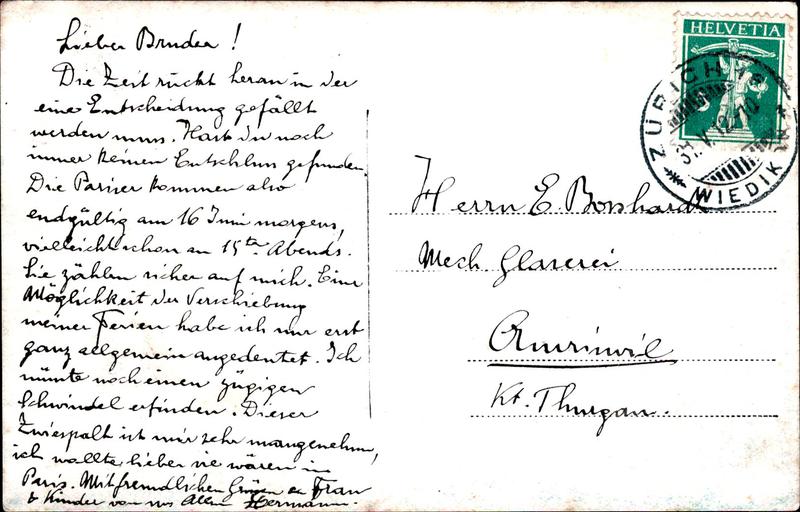 Lieber Bruder!
Die Zeit rückt heran in der
eine Entscheidung gefällt
werden muss. Hast Du noch
immer keinen Entschluss gefunden.
Die Pariser kommen also
endgültig am 16 Juni morgens,
vielleicht schon am 15ten Abends.
Sie zählen sicher auf mich. Eine
Möglichkeit der Verschiebung
meiner Ferien habe ich nur erst
ganz allgemein angedeutet. Ich
müsste noch einen zügigen
Schwindel erfinden. Dieser
Zwiespalt ist mir sehr unangenehm,
ich wollte lieber sie wären in
Paris. Mit freundlichen Grüssen an Frau
& Kinder von uns Allen Hermann.
HELVETIA
ZÜRICH
31.V.12-10
WIEDIK
Herrn E. Bosshard
Mech. Glaserei
Amriswil
Kt. Thurgau.